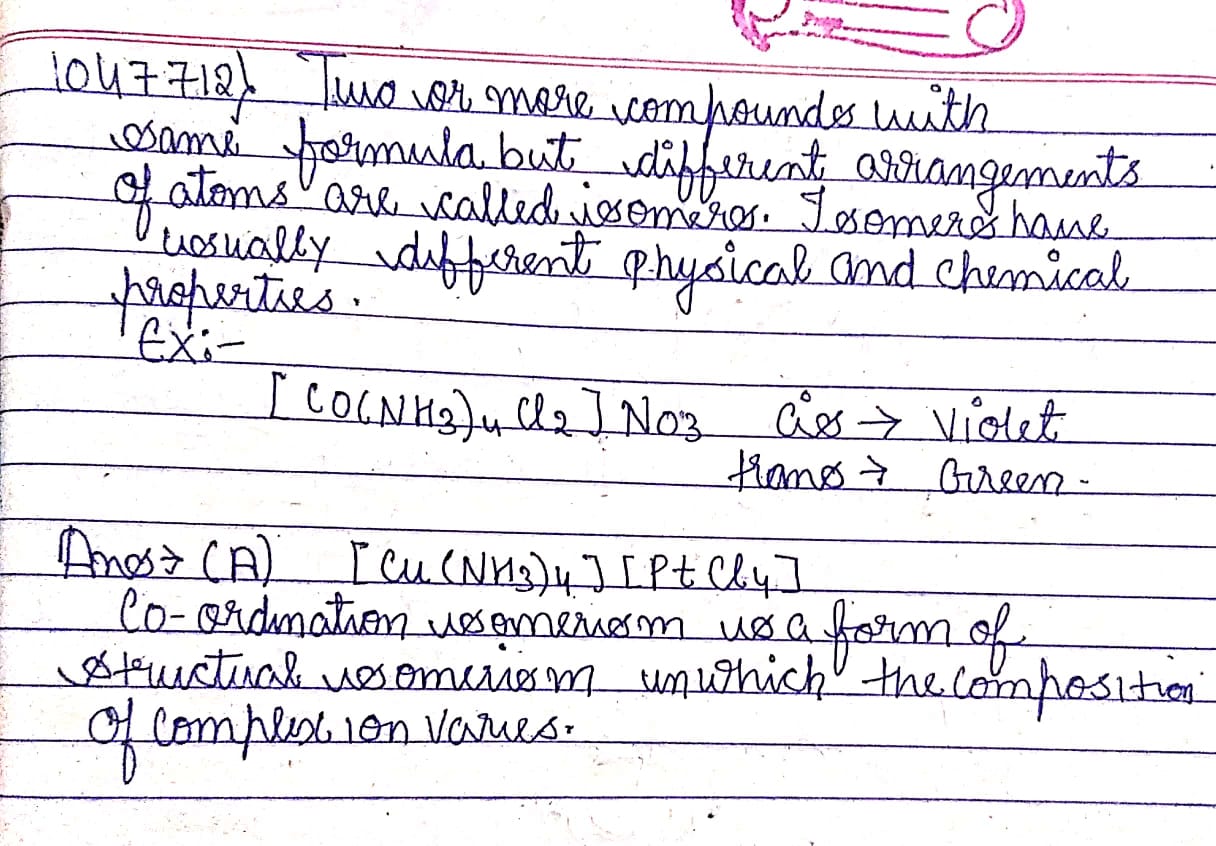 1047712) Two or more compoundes with
same formula but different arrangements
of atoms are called isomers. Isomers have
usually different physical and chemical
properties.
Ex:-
[CO(NH3)4 Cl2] NO3 Cis → Violet
trans → Green -
Ans → (A) [Cu(NH3)4] [PtCl4]
Co-ordination isomerism is a form of
structural isomerism in which the composition
of complex ion varies.